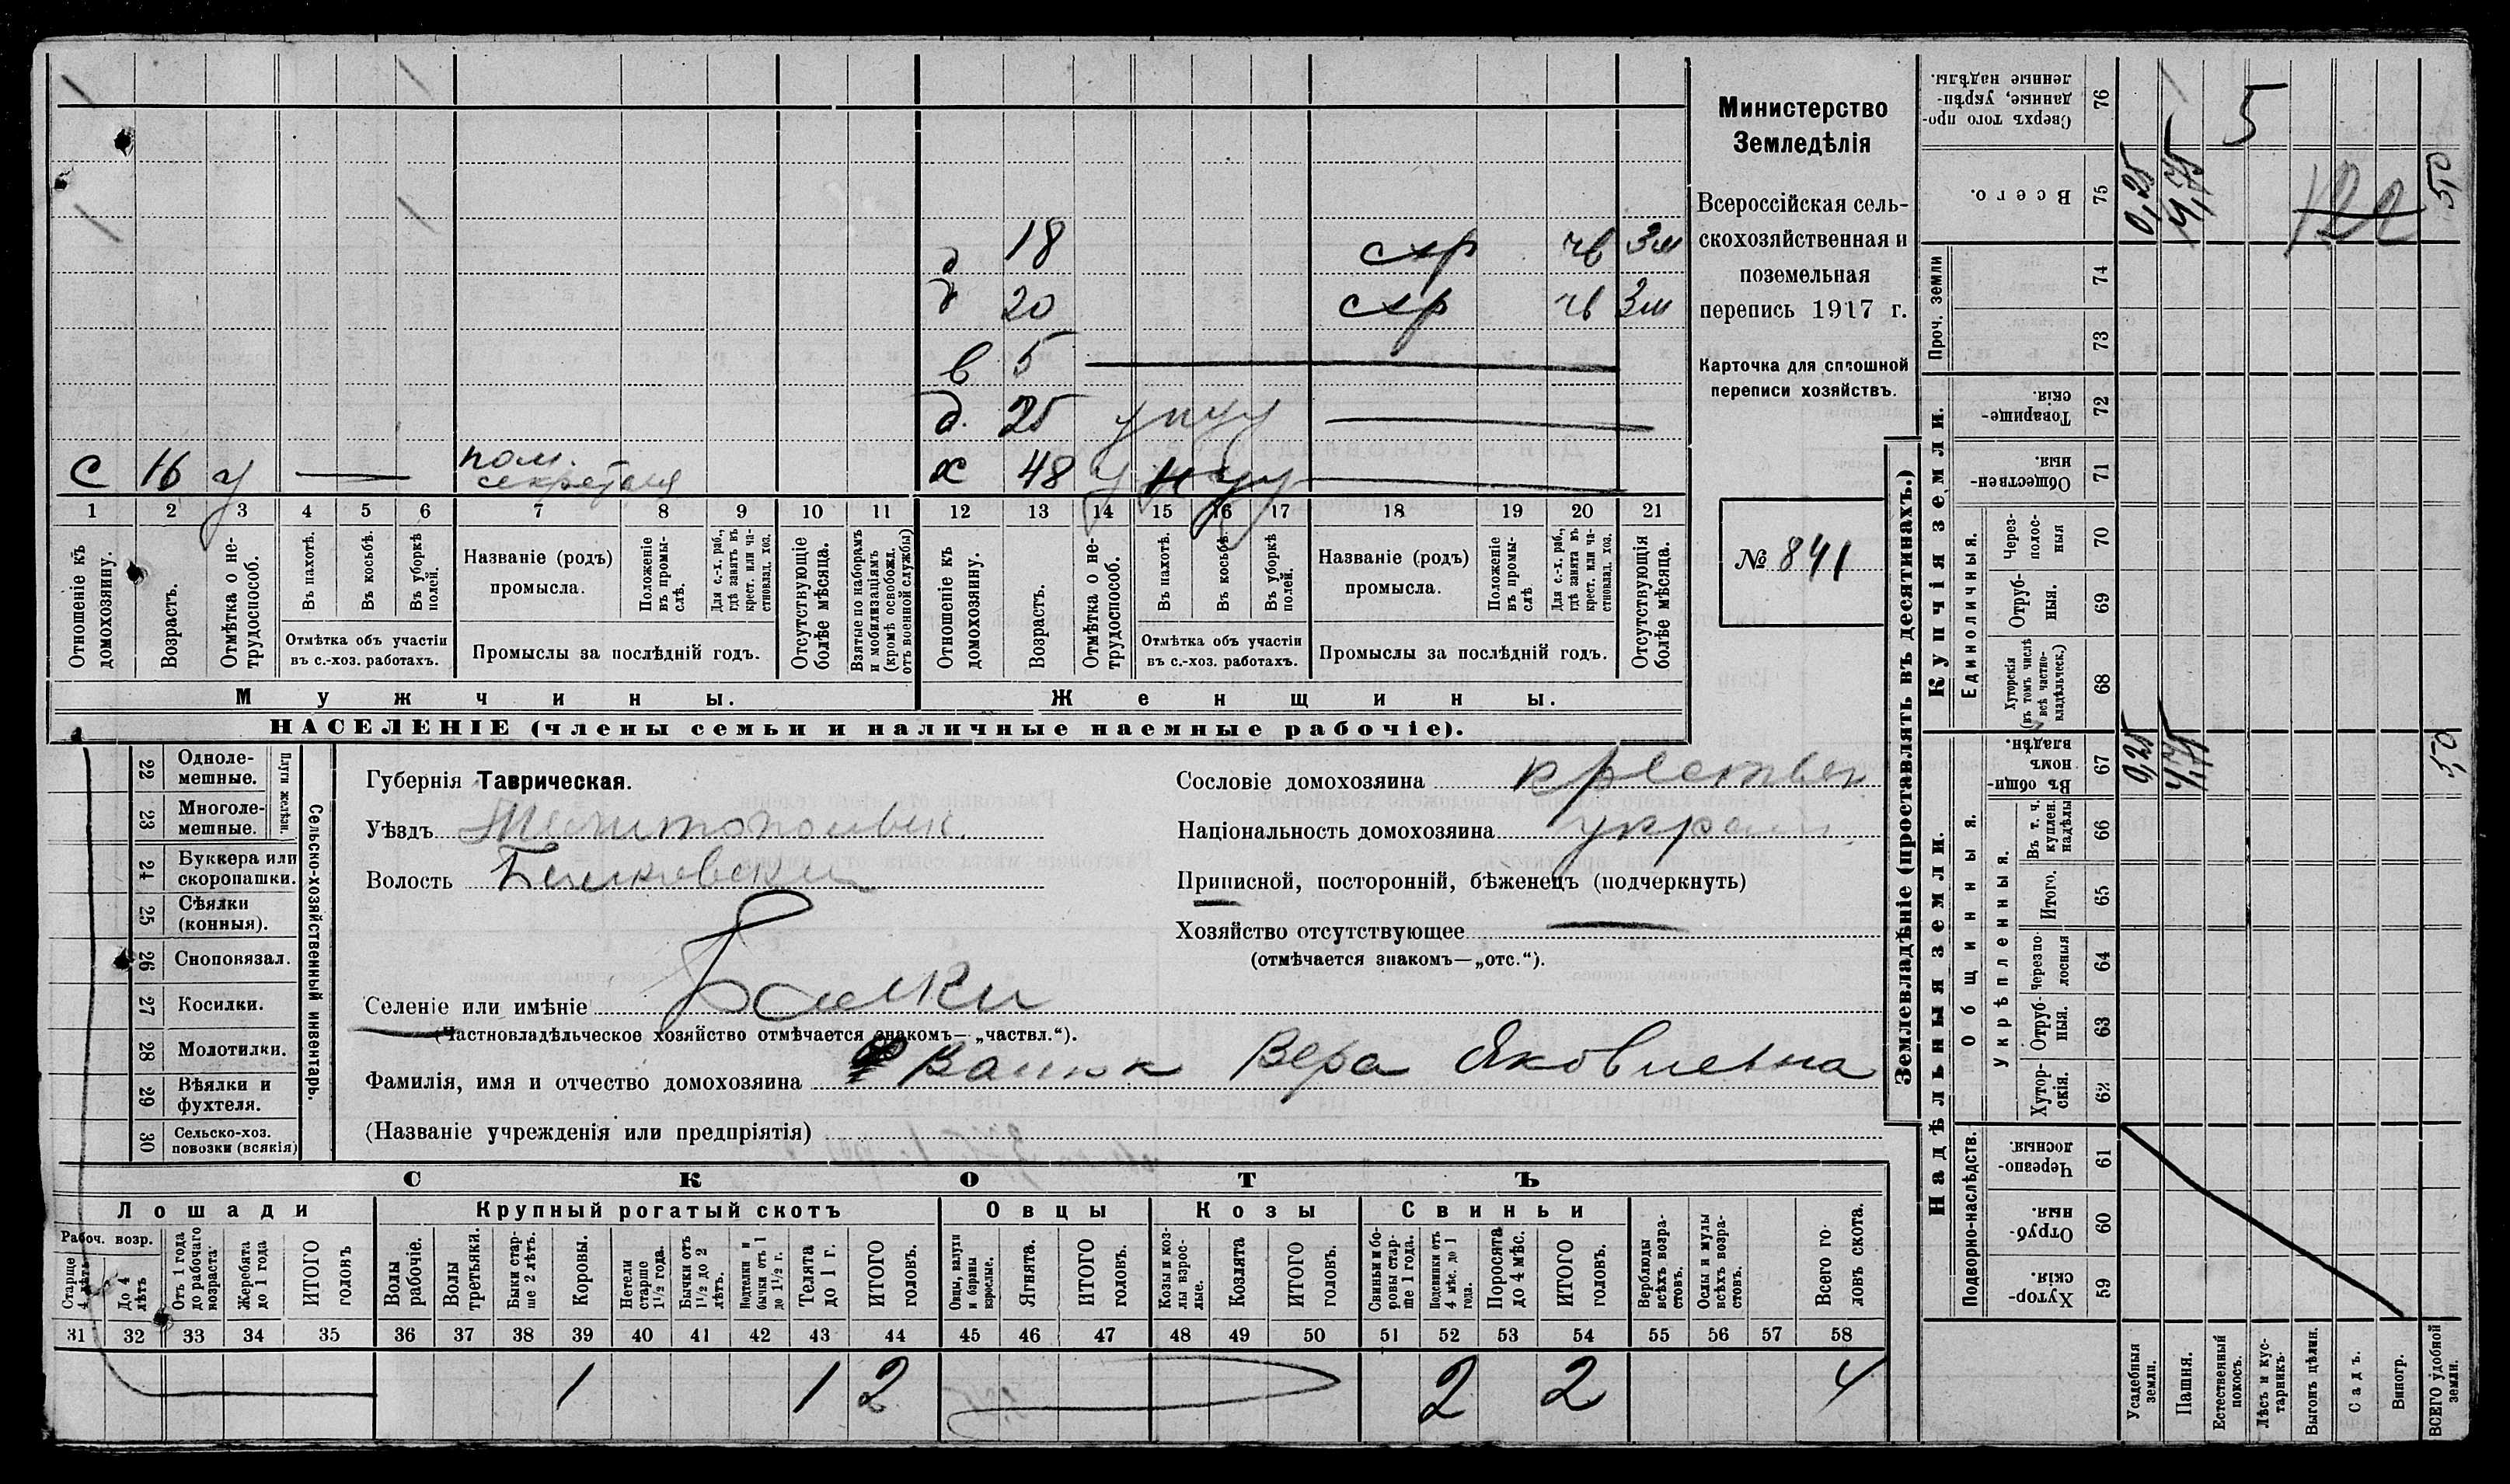 Министерство
Земледѣлія
Всероссійская сель-
скохозяйственная и
поземельная
перепись 1917 г.
Карточка для сплошной
переписи хозяйствъ.
№ 841
18 схр чв 3м
20 схр чв 3м
в 5
д. 25
х 48
с 16 у пом. секретаря
1 2 3 4 5 6 7 8 9 10 11 12 13 14 15 16 17 18 19 20 21
Отношеніе къ домохозяину.
Возрастъ.
Отмѣтка о не-трудоспособ.
Въ пахотѣ.
Въ косьбѣ.
Въ уборкѣ полей.
Отмѣтка объ участіи
въ с.-хоз. работахъ.
Названіе (родъ)
промысла.
Положеніе въ промы-слѣ.
Для с.-х. раб., гдѣ занятъ въ крест. или ча-стновлад. хоз.
Промыслы за послѣдній годъ.
Отсутствующіе болѣе мѣсяца.
Взятые по наборамъ и мобилизаціямъ (кромѣ освобожд. отъ военной службы)
Отношеніе къ домохозяину.
Возрастъ.
Отмѣтка о не-трудоспособ.
Въ пахотѣ.
Въ косьбѣ.
Въ уборкѣ полей.
Отмѣтка объ участіи
въ с.-хоз. работахъ.
Названіе (родъ)
промысла.
Положеніе въ промы-слѣ
Для с.-х. раб., гдѣ занята въ крест. или ча-стновлад. хоз.
Промыслы за послѣдній годъ.
Отсутствующія болѣе мѣсяца.
Мужчины.
Женщины.
НАСЕЛЕНІЕ (члены семьи и наличные наемные рабочіе).
Сельско-хозяйственный инвентарь.
Плуги желѣзн.
22 Одноле-мешные.
23 Многоле-мешные.
24 Буккера или скоропашки.
25 Сѣялки (конныя).
26 Сноповязал.
27 Косилки.
28 Молотилки.
29 Вѣялки и фухтеля.
30 Сельско-хоз. повозки (всякія)
Губернія Таврическая.
Уѣздъ Мелитопольск.
Волость Балковская
Селеніе или имѣніе Балки
(Частновладѣльческое хозяйство отмѣчается знакомъ— „частвл.“).
Сословіе домохозяина крестьян
Національность домохозяина украин
Приписной, посторонній, бѣженецъ (подчеркнуть)
Хозяйство отсутствующее
(отмѣчается знакомъ—„отс.“).
Фамилія, имя и отчество домохозяина Вера Яковлевна
(Названіе учрежденія или предпріятія)
СКОТЪ
Лошади
Крупный рогатый скотъ
Овцы
Козы
Свиньи
Рабоч. возр.
Старше 4 лѣтъ
До 4 лѣтъ
Отъ 1 года до рабочаго возраста
Жеребята до 1 года
ИТОГО головъ
Волы рабочіе.
Волы третьяки.
Быки стар-ше 2 лѣтъ.
Коровы.
Нетели старше 1½ года.
Бычки отъ 1½ до 2 лѣтъ.
Подтелки и бычки отъ 1 до 1½ г.
Телята до 1 г.
ИТОГО головъ.
Овцы, валухи и бараны взрослые.
Ягнята.
ИТОГО головъ.
Козы и коз-лы взрос-лые.
Козлята
ИТОГО головъ.
Свиньи и бо-ровы стар-ше 1 года.
Подсвинки отъ 4 мѣс. до 1 года.
Поросята до 4 мѣс.
ИТОГО головъ.
Верблюды всѣхъ возра-стовъ.
Ослы и мулы всѣхъ возра-стовъ.
Всего го-ловъ скота.
31 32 33 34 35 36 37 38 39 40 41 42 43 44 45 46 47 48 49 50 51 52 53 54 55 56 57 58
1 1 2 2 2 4
Землевладѣніе (проставлять въ десятинахъ.)
Купчія земли.
Надѣльныя земли.
Сверхъ того про-данные, укрѣп-ленные надѣлы. 76 5
Всего. 75 0,25 4,75 122 5,0
Проч. земли 74
73
Товарище-скія. 72
Обществен-ныя. 71
Единоличныя.
Через-полос-ныя 70
Отруб-ныя. 69
Хуторскія (въ томъ числѣ всѣ частно-владѣльческ.) 68
Общинныя.
Въ общи-номъ владѣн. 67 0,25 4,75 5,0
Укрѣпленныя.
Въ т. ч. куплен. надѣлы 66
Итого. 65
Черезпо-лосныя 64
Отруб-ныя. 63
Хутор-скія. 62
Подворно-наслѣдств.
Черезпо-лосныя. 61
Отруб-ныя. 60
Хутор-скія. 59
Усадебныя земли.
Пашня.
Естественный покосъ.
Лѣсъ и кус-тарникъ.
Выгонъ цѣлин.
Садъ.
Виногр.
ВСЕГО удобной земли.